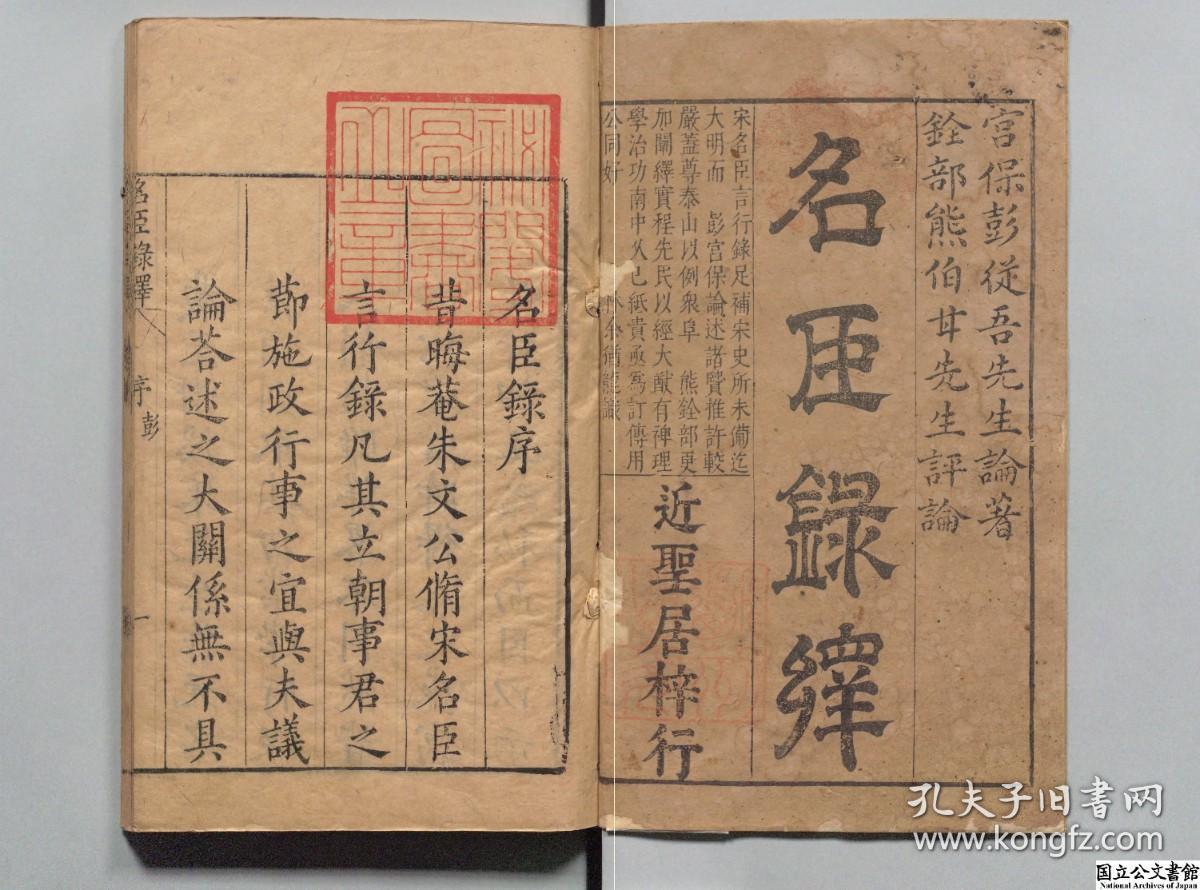 宮保彭從吾先生論著
銓部熊伯甘先生評論
名臣録繹
宋名臣言行錄足補宋史所未備迄
大明而 彭宮保論述諸賢推許較
嚴蓋尊泰山以例衆阜 熊銓部更
加闡繹實程先民以經大猷有裨理
學治功南中久已紙貴亟爲訂傳用
公同好
近聖居梓行
名臣錄序
昔晦菴朱文公脩宋名臣
言行錄凡其立朝事君之
節施政行事之宜與夫議
論荅述之大關係無不具
名臣錄繹
序 彭
一
孔夫子旧书网
www.kongfz.com
国立公文書館
National Archives of Japan